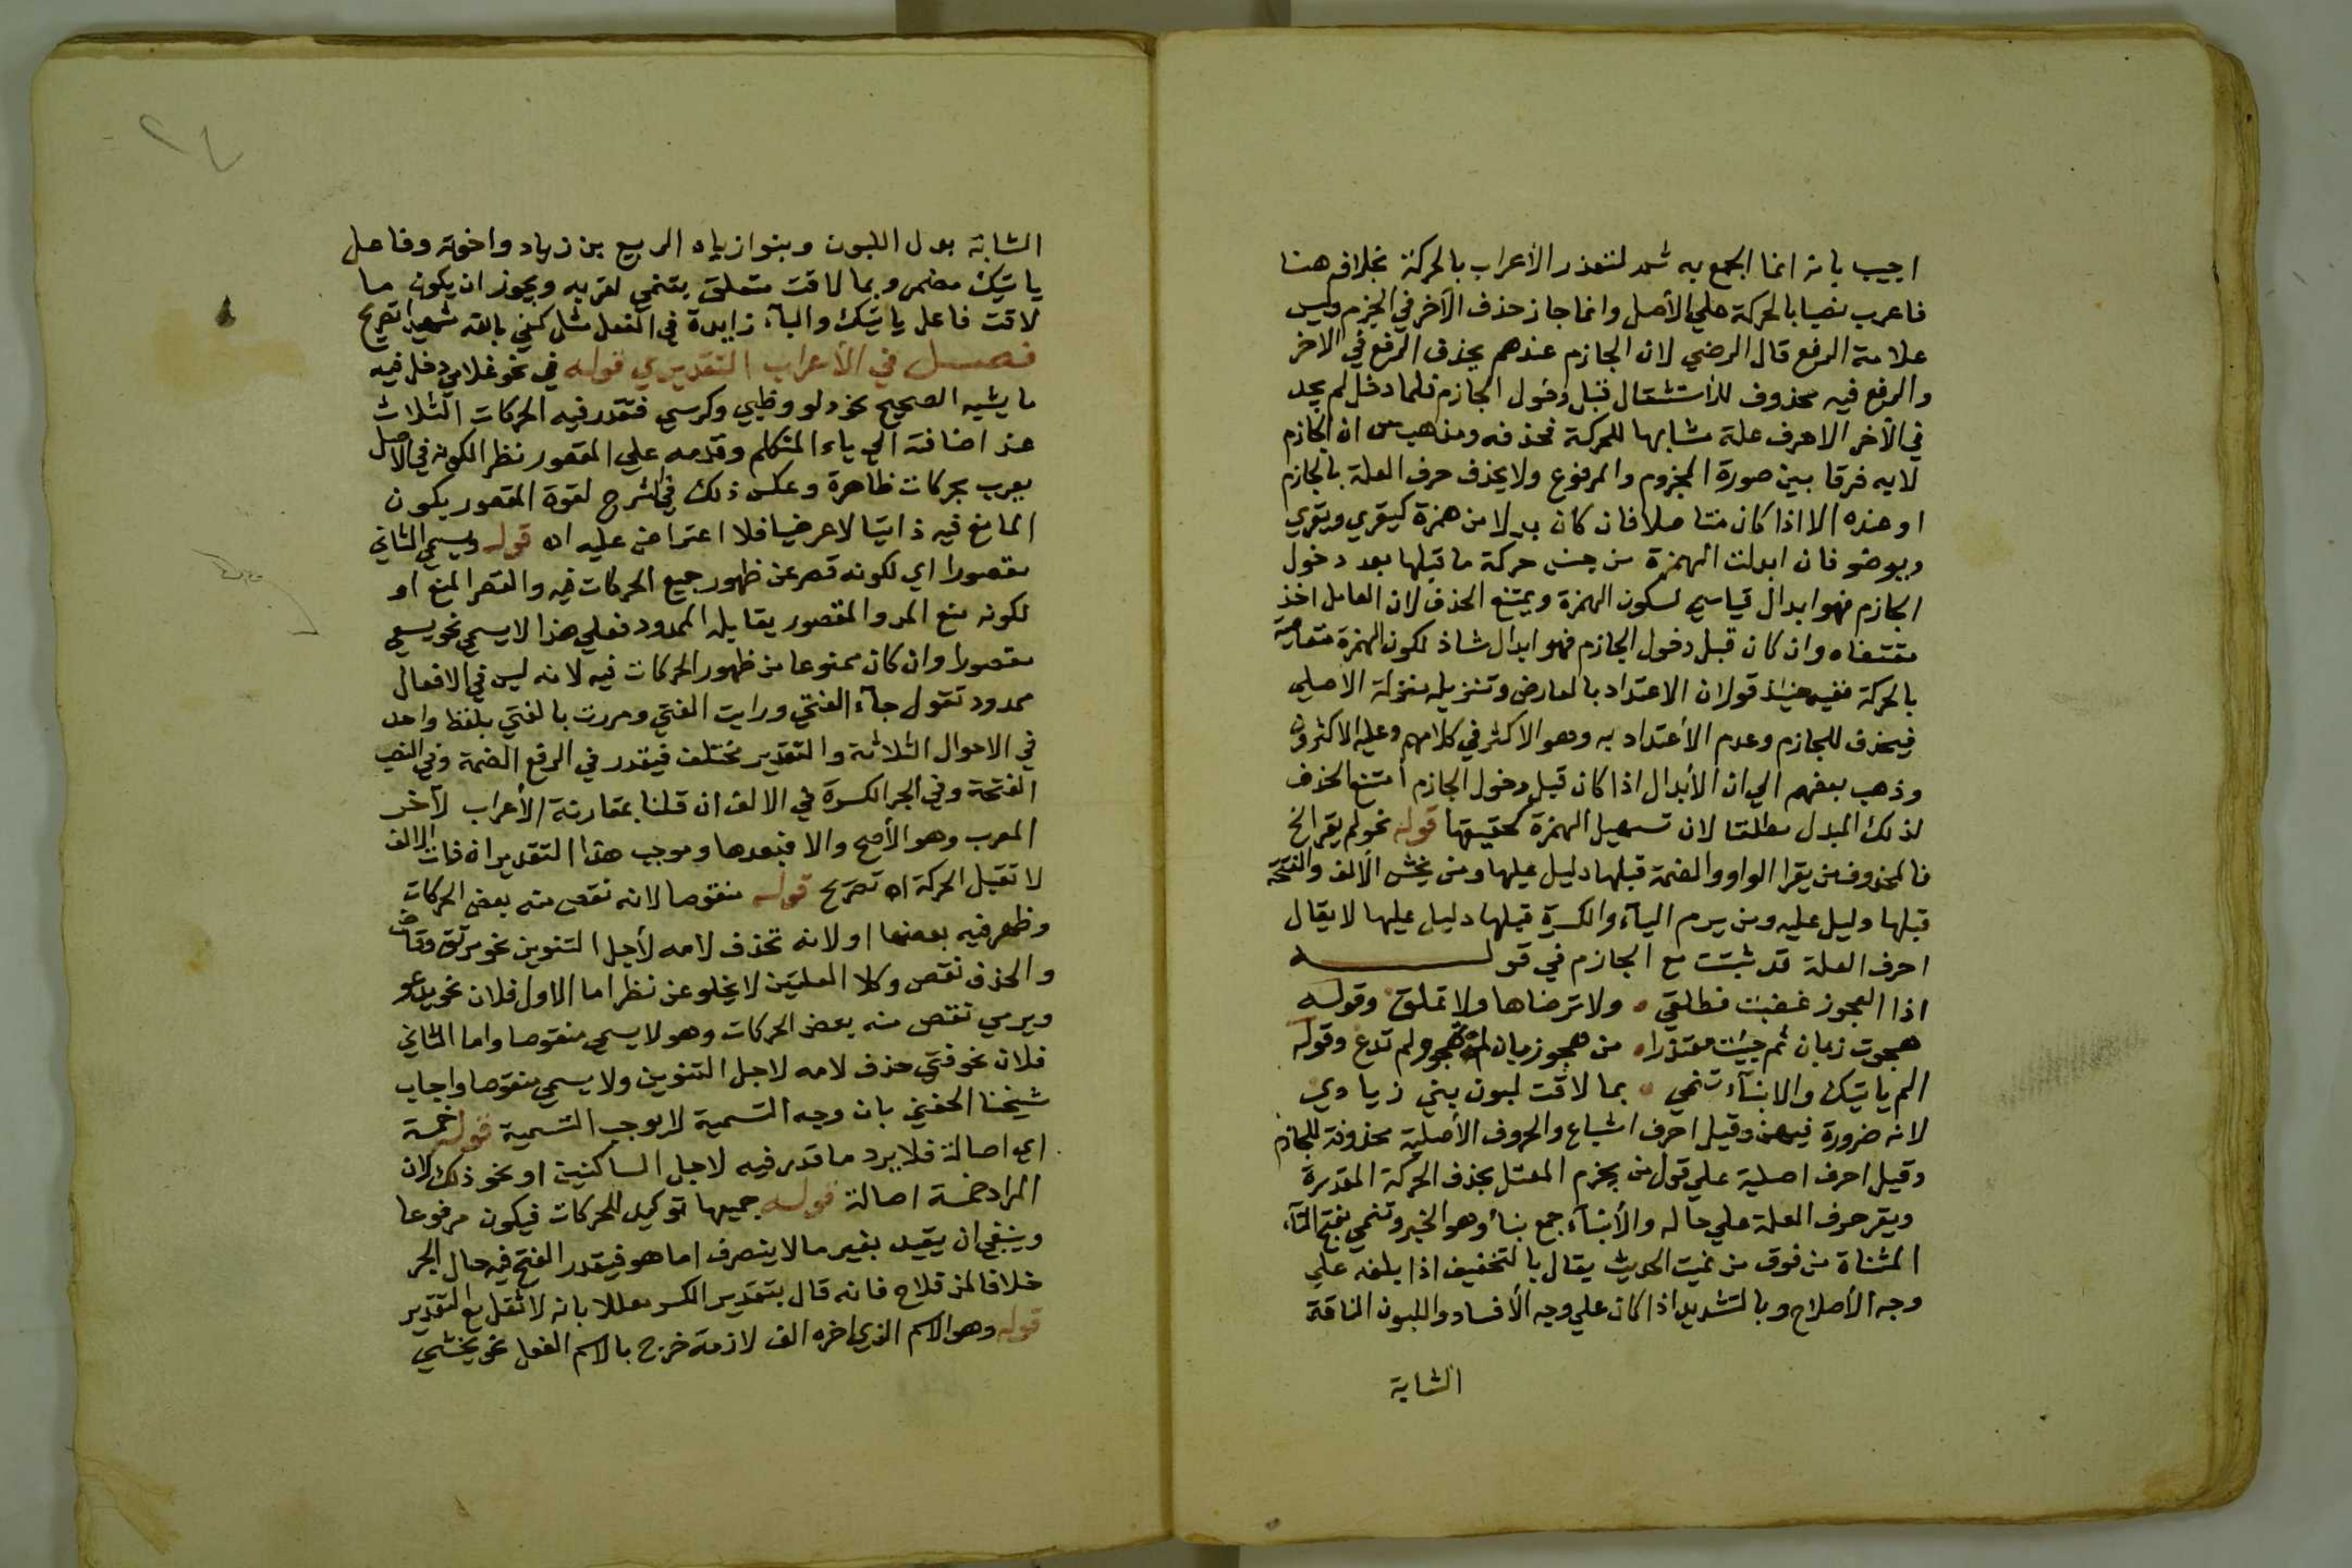 اجيب بانه انما الجمع به شمد لتعذر الأعراب بالحركة بخلافه هنا
فاعرب نصبا بالحركة علي الأصل وانما جاز حذف الآخر في الجزم وليس
علامة الرفع قال الرضي لان الجازم عندهم يحذف الرفع في الاخر
والرفع فيه محذوف للأستثقال قبل دخول الجازم فلما دخل لم يجد
في الآخر الا حرف علة مشابها للحركة فحذفه ومذهب س ان الجازم
لابه فرقا بين صورة المجزوم والمرفوع ولا يحذف حرف العلة بالجازم
او عنده الا اذا كان متاصلا فان كان بدلا من همزة كيقري ويقري
ويوضو فان ابدلت الهمزة من جنس حركة ما قبلها بعد دخول
الجازم فهو ابدال قياسي لسكون الهمزة ويمتنع الحذف لان العامل اخذ
مقتضاه وان كان قبل دخول الجازم فهو ابدال شاذ لكون الهمزة متعاصية
بالحركة ففيه حينئذ قولان الاعتداد بالعارض وتنزيله منزلة الاصلي
فيحذف للجازم وعدم الأعتداد به وهو الاكثر في كلامهم وعليه الاكثرون
وذهب بعضهم الي ان الأبدال اذا كان قبل دخول الجازم امتنع الحذف
لذلك المبدل مطلقا لان تسهيل الهمزة كتحقيقها قوله نحو لم يقر الخ
فالمحذوف من يقرا الواو والضمة قبلها دليل عليها ومن يخش الألف والفتحة
قبلها دليل عليه ومن يرم اليآء والكسرة قبلها دليل عليها لا يقال
احرف العلة قد ثبتت مع الجازم في قوله
اذا العجوز غضبت فطلق ٥ ولا ترضاها ولا تملق وقوله
هجوت زبان ثم جيئت معتذرا ٥ من هجو زبان لم تهجو ولم تدع وقوله
الم ياتيك والانبآء تنمي ٥ بما لاقت لبون بني زيادي
لانه ضرورة فيهن وقيل احرف اشباع والحروف الأصلية محذوفة للجازم
وقيل احرف اصلية علي قول من يجزم المعتل بحذف الحركة المقدرة
ويقر حرف العلة علي حاله والأنبآء جمع نبأ وهو الخبر وتنمي بفتح التآء
المثناة من فوق من نميت الحديث يقال بالتخفيف اذا بلغه علي
وجه الأصلاح وبالتشديد اذا كان علي وجه الأفساد واللبون الناقة
الشابة
الشابة بدل اللبون وبنوا زياد الربيع بن زياد واخوته وفاعل
ياتيك مضمر وبما لاقت متعلق بتنمي لقربه ويجوز ان يكون ما
لاقت فاعل ياتيك والبآء زايدة في الفعل مثل كفي بالله شهيدا تصريح
فصل في الأعراب التقديري قوله في نحو غلامي دخل فيه
ما يشبه الصحيح نحو دلو وظبي وكرسي فتقدر فيه الحركات الثلاث
عند اضافته الي ياء المتكلم وقدمه علي المقصور نظرا لكونه في الاصل
يعرب بحركات ظاهرة وعكس ذلك في الشرح لقوة المقصور بكون
المانع فيه ذاتيا لا عرضيا فلا اعتراض عليه اه قوله ويسمي الثاني
مقصورا اي لكونه قصر عن ظهور جميع الحركات فيه والقصر المنع او
لكونه منع المد والمقصور يقابله الممدود فعلي هذا لا يسمي نحو يسعي
مقصورا وان كان ممنوعا من ظهور الحركات فيه لانه ليس في الافعال
ممدود تقول جآء الفتي ورايت الفتي ومررت بالفتي بلفظ واحد
في الاحوال الثلاثة والتقدير مختلف فيقدر في الرفع الضمة وفي النصب
الفتحة وفي الجر الكسرة في الالف ان قلنا بمقارنة الأعراب لآخر
المعرب وهو الأصح والا فبعدها وموجب هذا التقدير ان ذات الالف
لا تقبل الحركة اه تصريح قوله منقوصا لانه نقص منه بعض الحركات
وظهر فيه بعضها او لانه تحذف لامه لأجل التنوين نحو مرتق وقاض
والحذف نقص وكلا العلتين لا يخلو عن نظر اما الاول فلان نحو يدعو
ويرمي نقص منه بعض الحركات وهو لا يسمي منقوصا واما الثاني
فلان نحو فتي حذف لامه لاجل التنوين ولا يسمي منقوصا واجاب
شيخنا الحفني بان وجه التسمية لا يوجب التسمية قوله خمسة
اي اصالة فلا يرد ما قدر فيه لاجل الساكنين او نحو ذلك لان
المراد خمسة اصالة قوله جميعها توكيد للحركات فيكون مرفوعا
وينبغي ان يقيد بغير ما لا ينصرف اما هو فيقدر الفتح فيه حال الجر
خلافا لابن فلاح فانه قال بتقدير الكسر معللا بانه لا ثقل مع التقدير
قوله وهو الاسم الذي اخره الف لازمة خرج بالاسم الفعل نحو يخشي